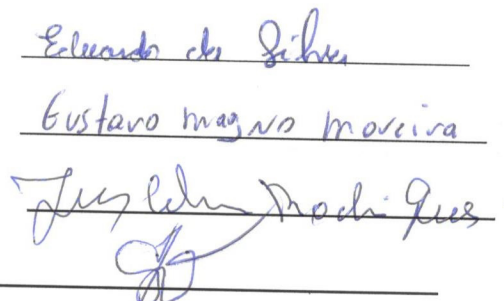 Eduardo da Silva
Gustavo magno moreira
Rodrigues